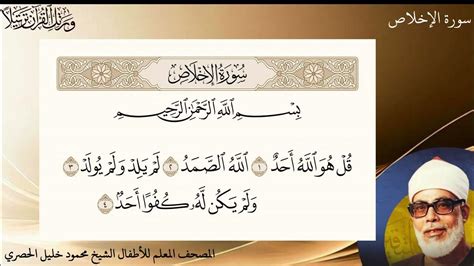 سورة الإخلاص
ورتل القرآن ترتيلاً
سُورَةُ الإِخْلَاصِ
بِسْمِ اللَّهِ الرَّحْمَٰنِ الرَّحِيمِ
قُلْ هُوَ اللَّهُ أَحَدٌ ١ اللَّهُ الصَّمَدُ ٢ لَمْ يَلِدْ وَلَمْ يُولَدْ ٣
وَلَمْ يَكُن لَّهُ كُفُوًا أَحَدٌ ٤
المصحف المعلم للأطفال الشيخ محمود خليل الحصري